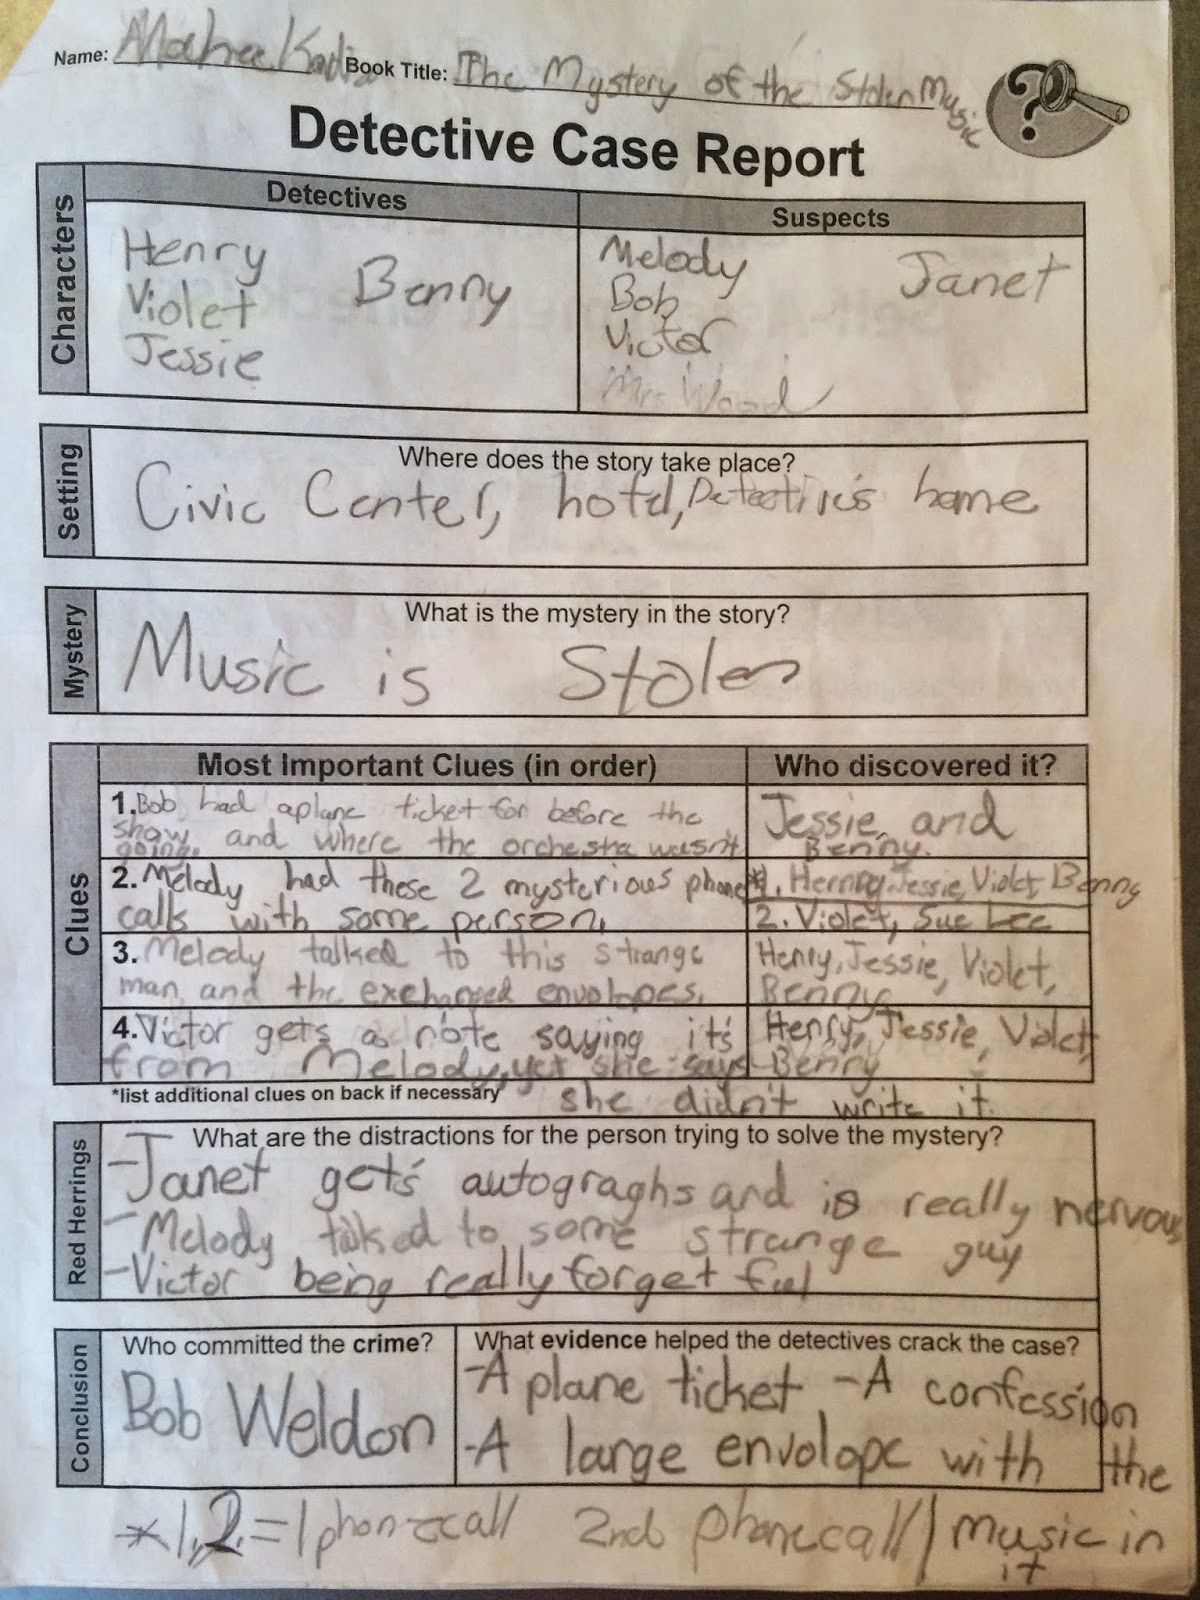 Name: Mahee Book Title: The Mystery of the Stolen Music
Detective Case Report
Characters
Detectives
Suspects
Henry
Violet
Jessie
Benny
Melody
Bob
Victor
Mrs Wood
Janet
Setting
Where does the story take place?
Civic Center, hotel, Detective's home
Mystery
What is the mystery in the story?
Music is Stolen
Clues
Most Important Clues (in order)
Who discovered it?
1. Bob had a plane ticket for before the
show and where the orchestra wasn't
going.
Jessie, and
Benny.
2. Melody had these 2 mysterious phone
calls with some person.
*1. Henry, Jessie, Violet, Benny
2. Violet, Sue Lee
3. Melody talked to this strange
man and the exchanged envolopes.
Henry, Jessie, Violet,
Benny
4. Victor gets a note saying it's
from Melody, yet she says
she didn't write it.
Henry, Jessie, Violet,
Benny
*list additional clues on back if necessary
Red Herrings
What are the distractions for the person trying to solve the mystery?
-Janet get's autograghs and is really nervous
-Melody talked to some strange guy
-Victor being really forget ful
Conclusion
Who committed the crime?
Bob Weldon
What evidence helped the detectives crack the case?
-A plane ticket -A confession
-A large envolope with the
music in
it
*1,2.=1 phonecall 2nd phonecall